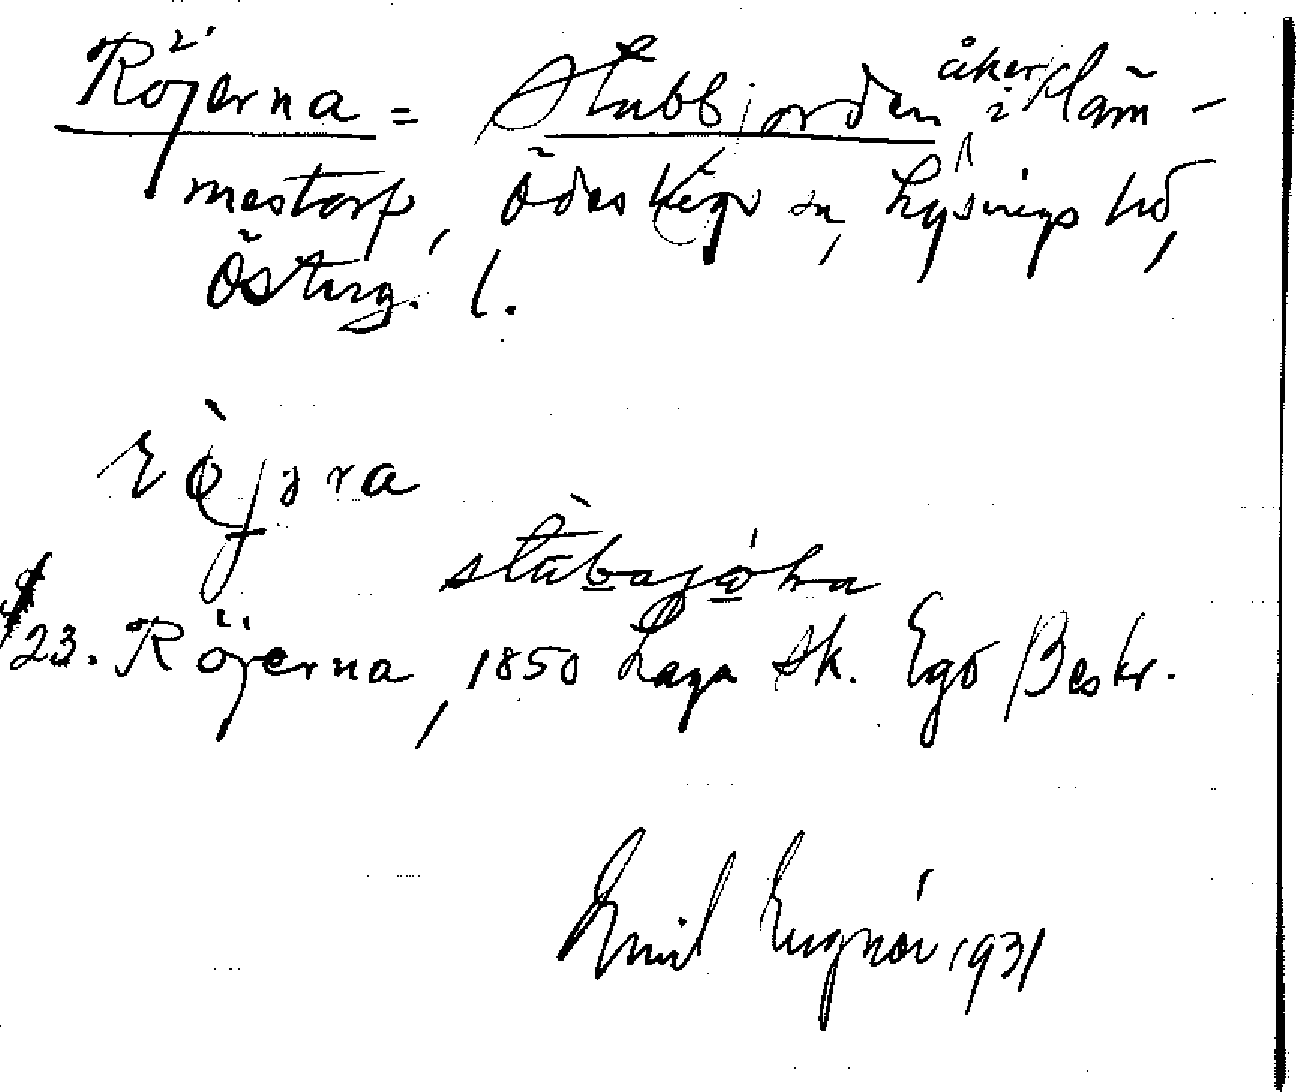 Röjerna = Stubbjorden åker i Häm-
mestorp, Ödeshögs sn, Lysings hd,
Österg. l.
röjṛa
stùbajóḷa
§23. Röjerna, 1850 Laga Sk. Ego Beskr.
Emil 1931